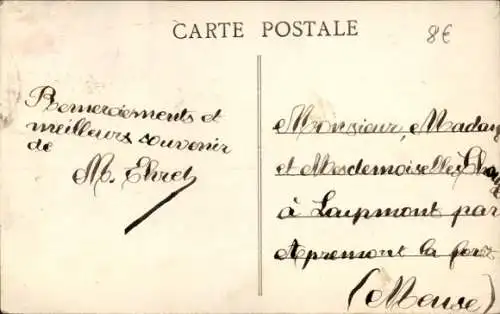 CARTE POSTALE
8€
Remerciements et
meilleurs souvenir
de
M. Ehret
Monsieur, Madam
et Mesdemoiselles
à Loupmont par
Apremont la forêt
(Meuse)